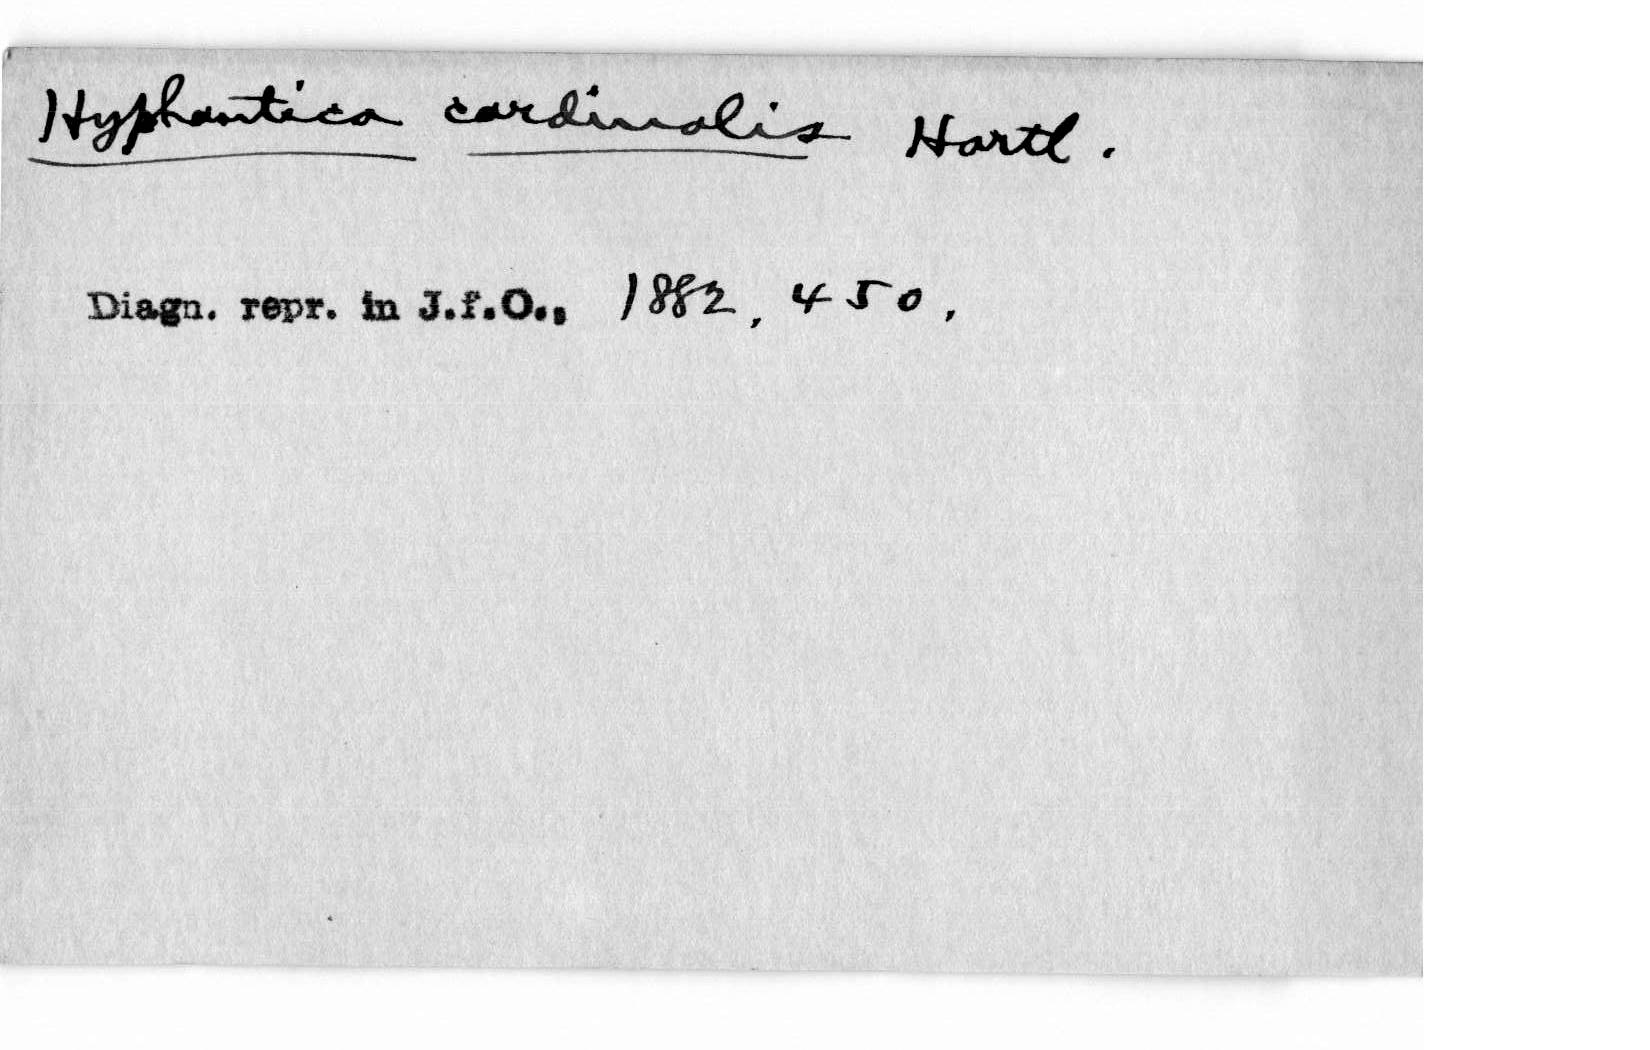 Hyphantica cardinalis Hartl.
Diagn. repr. in J.f.O., 1882, 450,